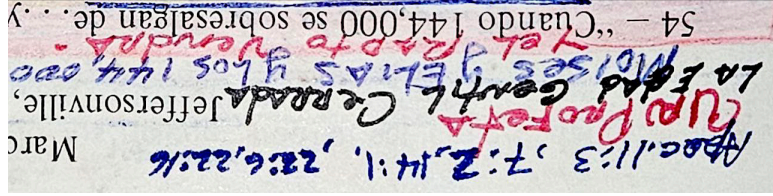 Apoc. 11:3, 7:2, 14:1, 22:6, 22:16
UN PROFETA
LA EDAD GENTIL CERRADA Jeffersonville,
MOISES y ELIAS y LOS 144,000
Y EL RAPTO VENDRA.
54 – “Cuando 144,000 se sobresalgan de. . . y